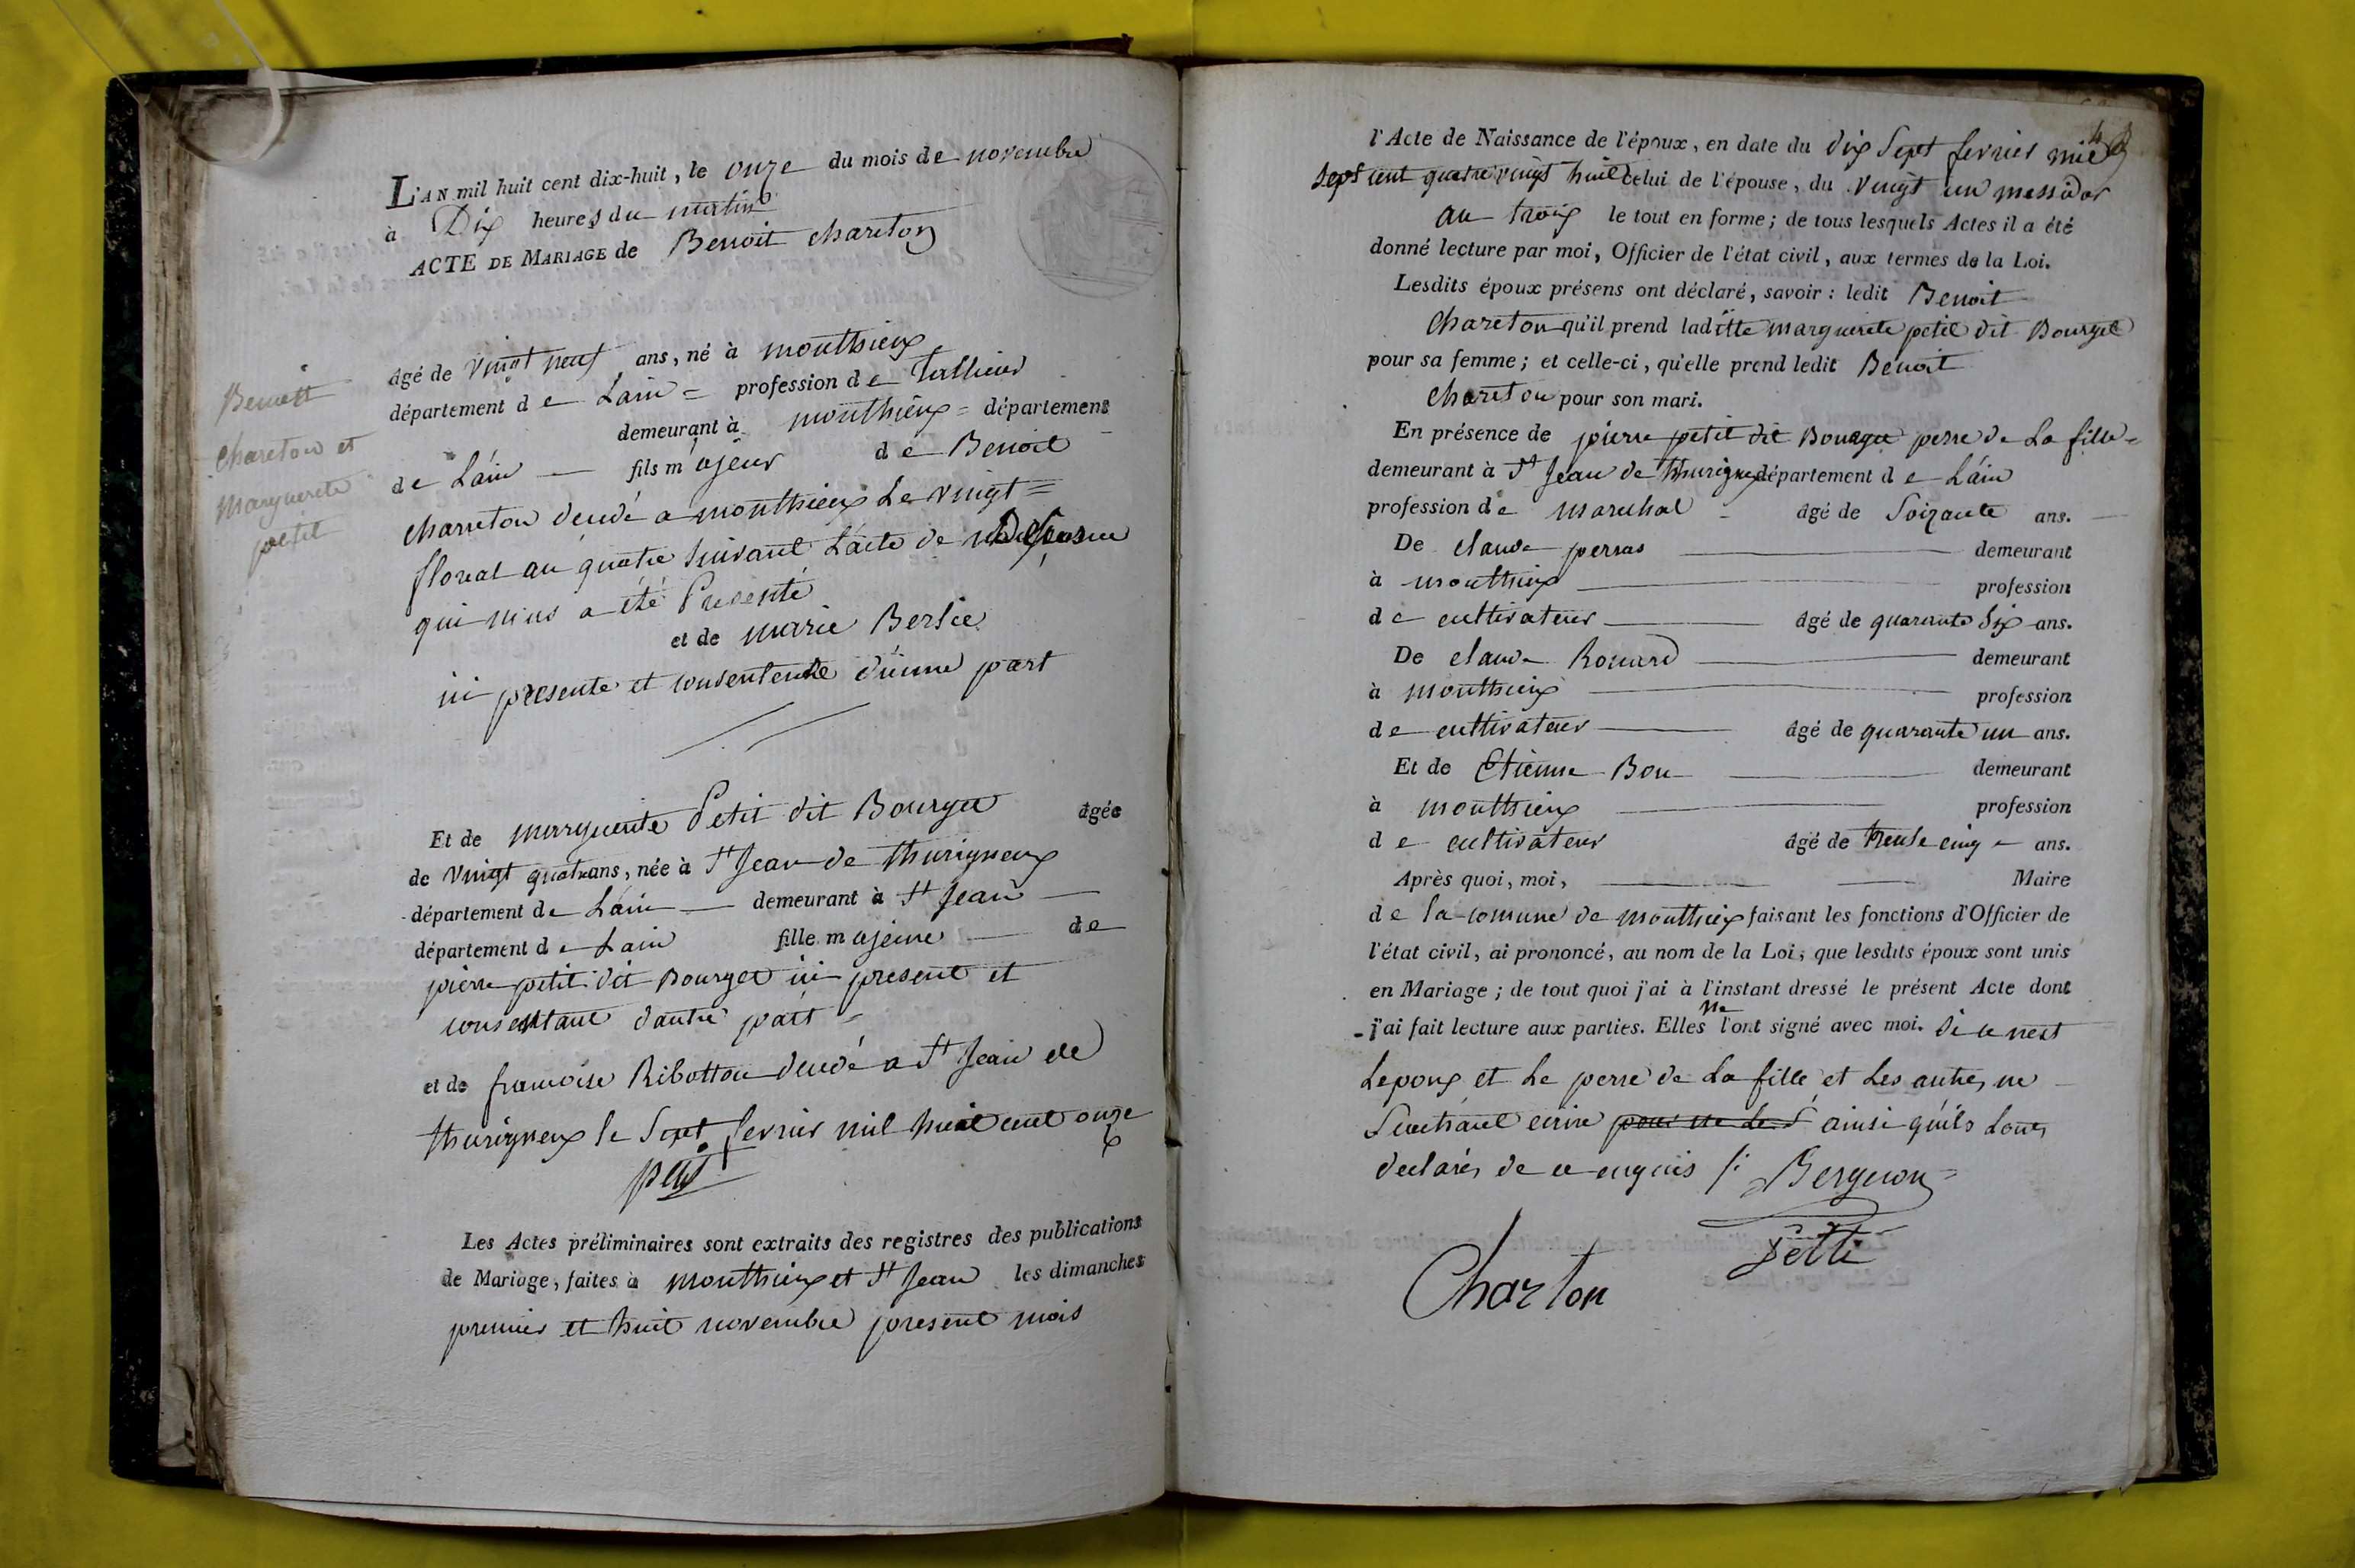 L'AN mil huit cent dix-huit, le onze du mois de novembre
à Dix heures du matin
ACTE DE MARIAGE de Benoit chareton
âgé de vingt neuf ans, né à monthieux
département de Lain = profession de Tallieur
demeurant à monthieux = département
de Lain — fils majeur de Benoit
charreton décédé a monthieux Le vingt =
floreal an quatre suivant L'acte de
qui nous a été Presenté
et de marie Berlie
ici presente et consentente d'unne part
Benoit
chareton et
marguerete
petit
Et de marguerite Petit dit Bourget âgée
de vingt quatre ans, née à St Jean de thurigneux
département de Lain — demeurant à St Jean —
département de Lain fille majeure — de
pierre petit dit Bourget ici present et
consentant d'autre part =
et de francoise Ribotton décédé a St Jean de
thurigneux le Sept fevrier mil huit cent onze
Les Actes préliminaires sont extraits des registres des publications
de Mariage, faites à monthieux et St Jean les dimanches
premier et huit novembre present mois
l'Acte de Naissance de l'époux, en date du dix Sept fevrier mil
Sept cent quatre vingt huit celui de l'épouse, du vingt un messidor
an troix le tout en forme; de tous lesquels Actes il a été
donné lecture par moi, Officier de l'état civil, aux termes de la Loi.
Lesdits époux présens ont déclaré, savoir: ledit Benoit
Chareton qu'il prend laditte marguerete petit dit Bourget
pour sa femme; et celle-ci, qu'elle prend ledit Benoit
Chareton pour son mari.
En présence de pierre petit dit Bourget perre de La fille =
demeurant à St Jean de Thurigneux département de Lain
profession de marechal - âgé de Soixante ans.
De Claude perras demeurant
à monthieux profession
de cultivateur âgé de quarante Six ans.
De claude Rouard demeurant
à monthieux profession
de cultivateur âgé de quarante un ans.
Et de Etienne Bon demeurant
à monthieux profession
de cultivateur âgé de trente cinq ans.
Après quoi, moi, Maire
de la comune de monthieux faisant les fonctions d'Officier de
l'état civil, ai prononcé, au nom de la Loi, que lesdits époux sont unis
en Mariage; de tout quoi j'ai à l'instant dressé le présent Acte dont
j'ai fait lecture aux parties. Elles ne l'ont signé avec moi. Si ce nest
Lepoux et Le perre de La fille et Les autres ne
Sachant ecrire ainsi quils Lont
declarés de ce enquis /: Bergeron
Petit
Charton